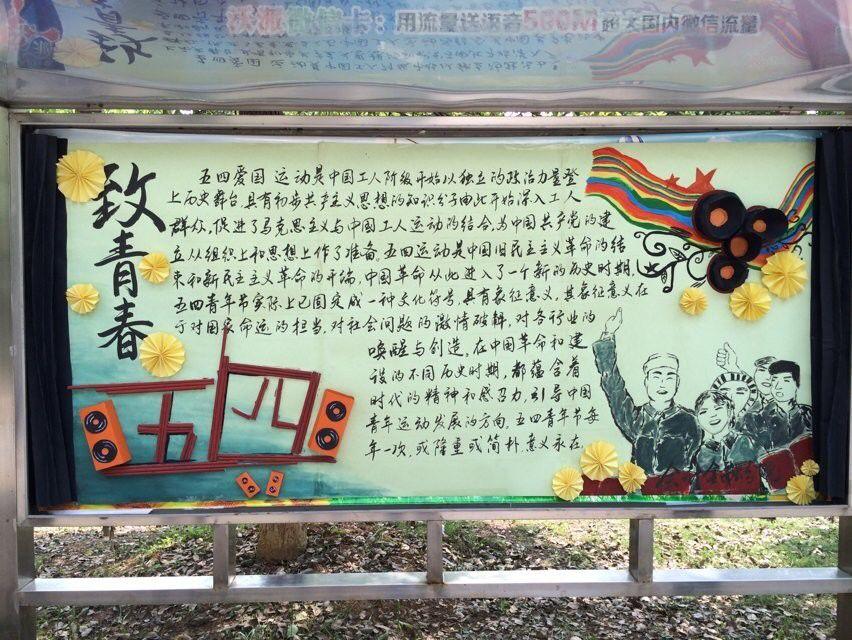 微信卡：用流量送语音500M超大国内微信流量
致青春
五四爱国运动是中国工人阶级开始以独立的政治力量登
上历史舞台，具有初步共产主义思想的知识分子由此开始深入工人
群众，促进了马克思主义与中国工人运动的结合，为中国共产党的建
立从组织上和思想上作了准备，五四运动是中国旧民主主义革命的结
束和新民主主义革命的开端，中国革命从此进入了一个新的历史时期，
五四青年节实际上已固定成一种文化符号，具有象征意义，其象征意义在
于对国家命运的担当，对社会问题的激情破解，对各行业的
唤醒与创造，在中国革命和建
设的不同历史时期，都蕴含着
时代的精神和感召力，引导中国
青年运动发展的方向，五四青年节每
年一次，或隆重或简朴，意义永在
五四